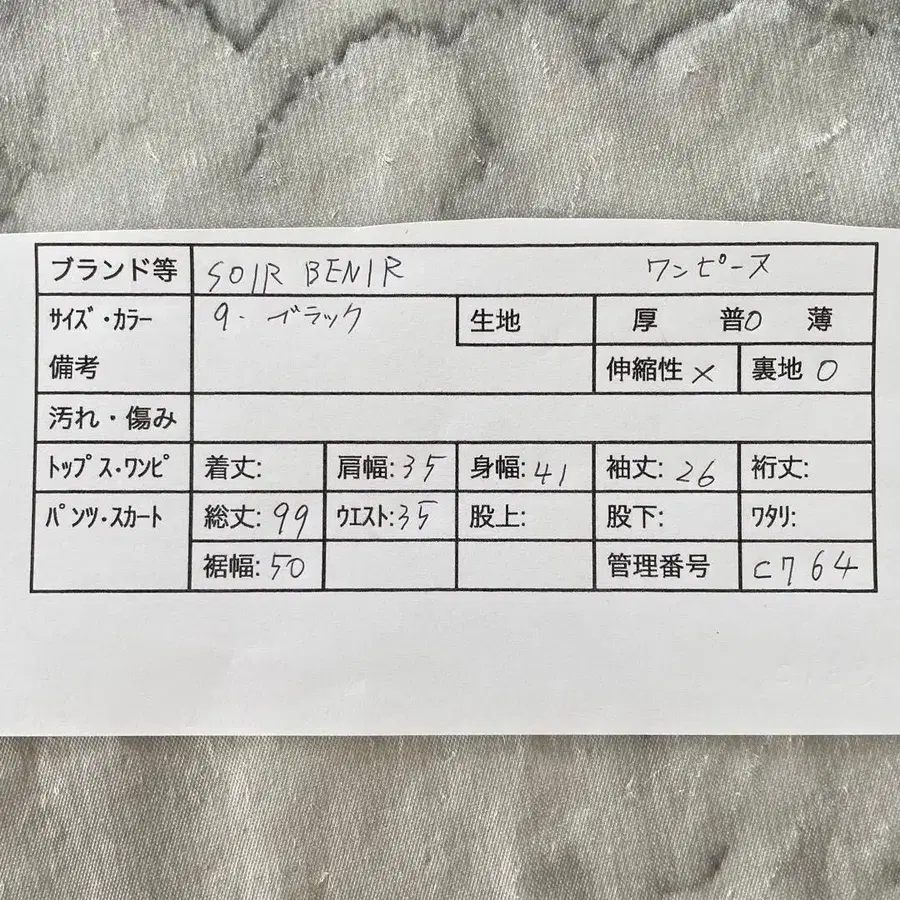 ブランド等 SOIR BENIR ワンピース
サイズ・カラー 9. ブラック 生地 厚 普O 薄
備考 伸縮性 × 裏地 O
汚れ・傷み
トップス・ワンピ 着丈: 肩幅:35 身幅:41 袖丈:26 裄丈:
パンツ・スカート 総丈:99 ウエスト:35 股上: 股下: ワタリ:
裾幅:50 管理番号 C764